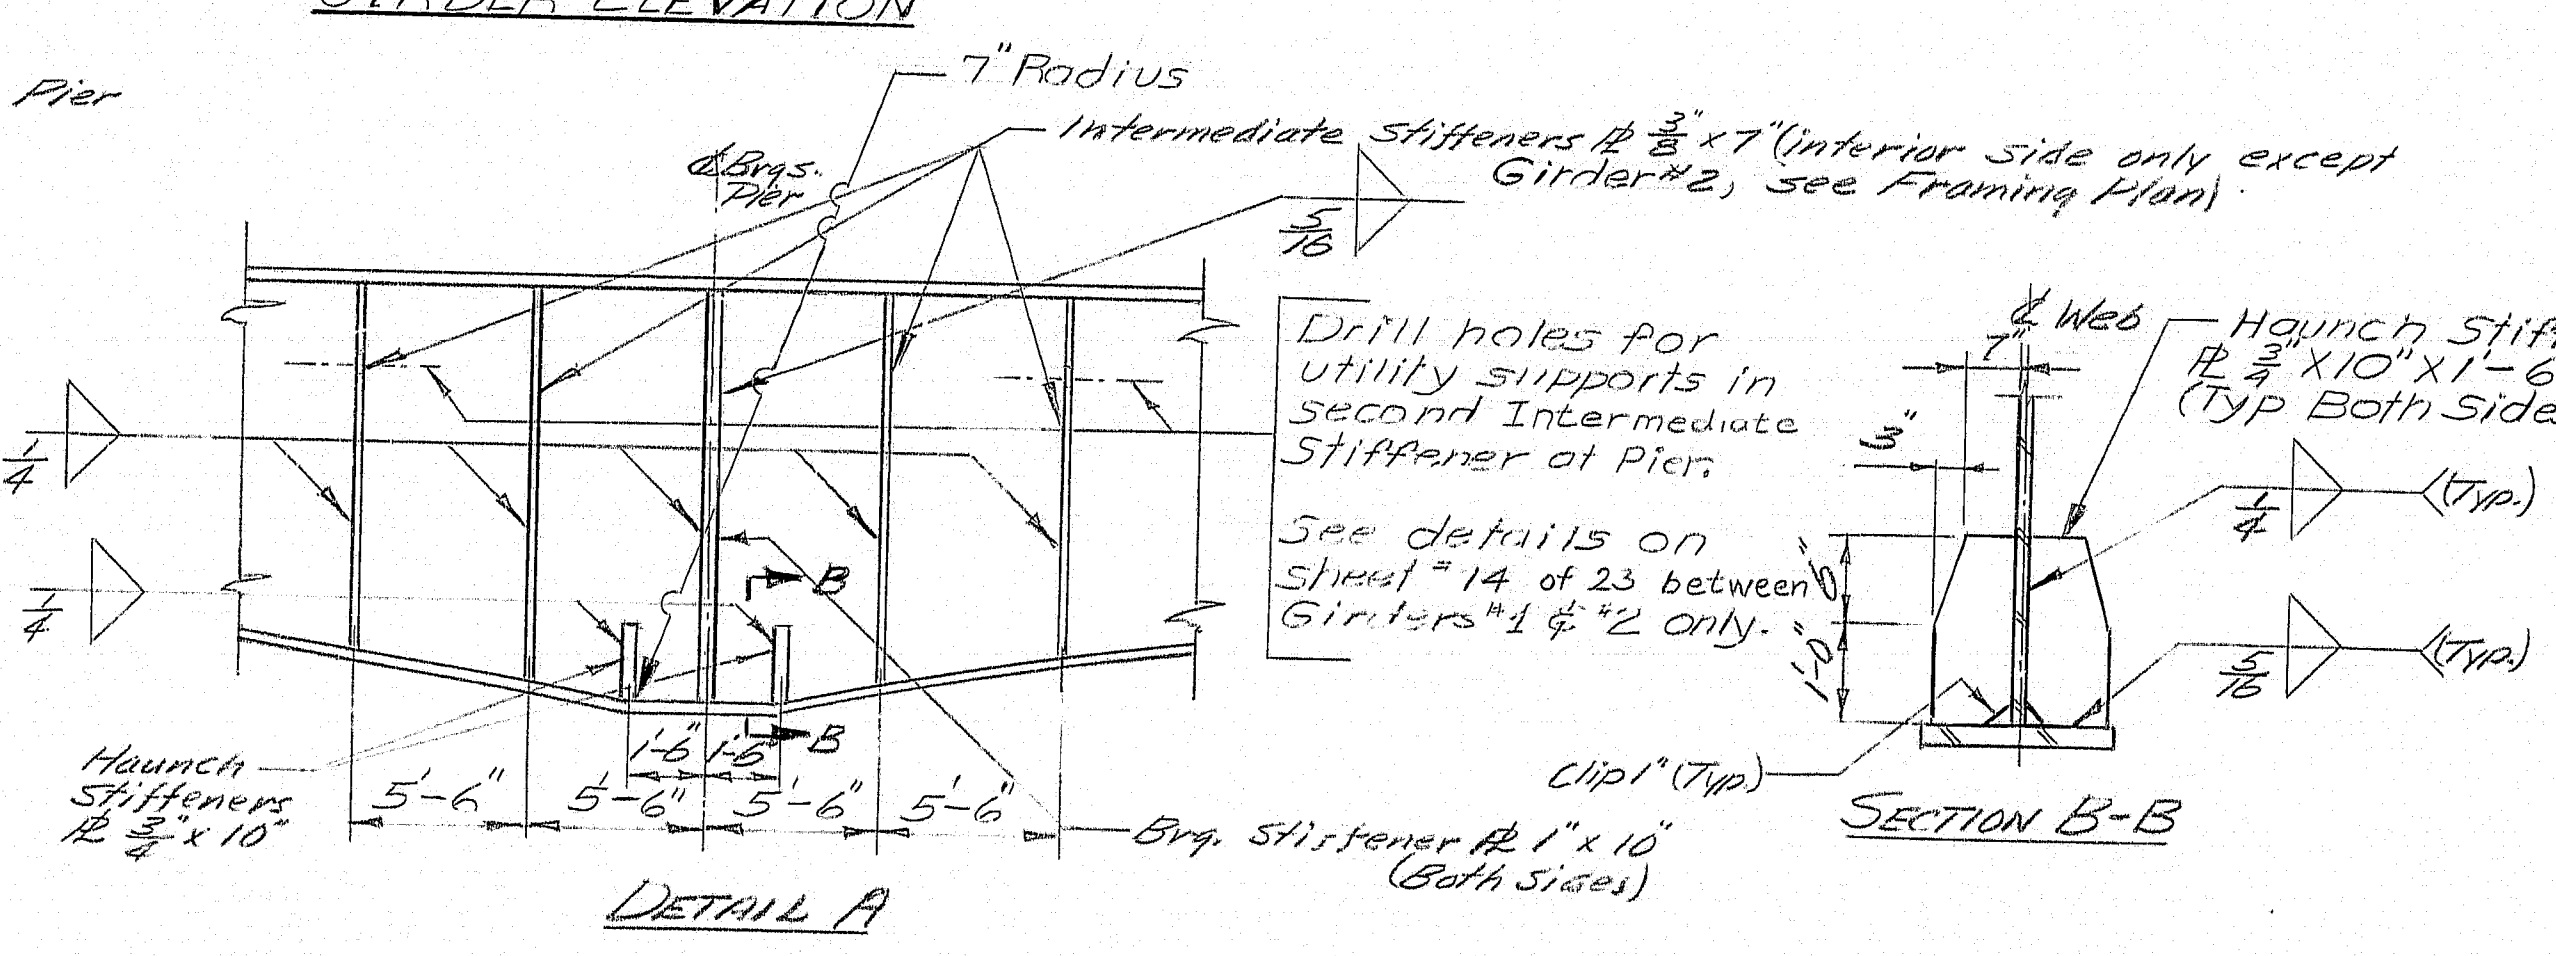 GIRDER ELEVATION
Pier
7" Radius
Intermediate Stiffeners ℄ 3/8" x 7" (interior side only except
Girder #2, see Framing Plan)
℄ Brgs.
Pier
5/16
Drill holes for
utility supports in
second Intermediate
Stiffener at Pier.
See details on
sheet #14 of 23 between
Girders #1 & #2 only.
1/4
1/4
B
B
1'-6" 1'-6"
5'-6" 5'-6" 5'-6" 5'-6"
Haunch
Stiffeners
PL 3/4" x 10"
Brg. Stiffener PL 1" x 10"
(Both Sides)
DETAIL A
℄ Web
7"
Haunch Stiff
PL 3/4" X 10" X 1'-6
(Typ Both Side
3"
1/4
(Typ.)
6"
1'-0"
5/16
(Typ.)
Clip 1" (Typ.)
SECTION B-B